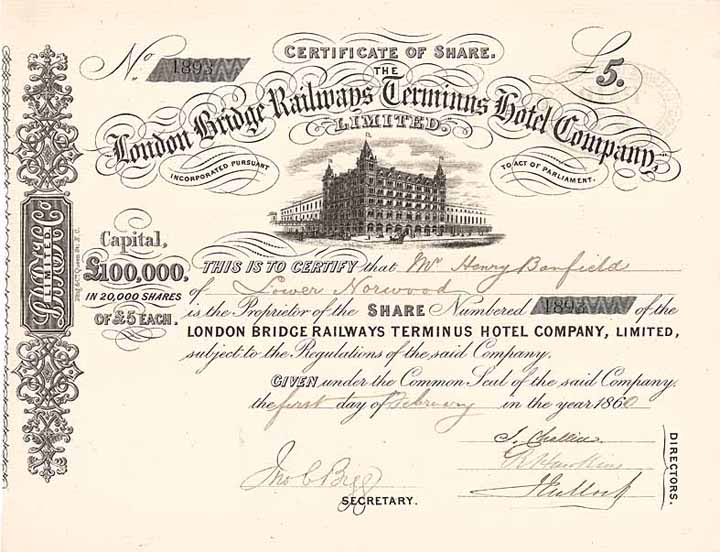 CERTIFICATE OF SHARE.
No. 1893
£5.
THE
London Bridge Railways Terminus Hotel Company,
LIMITED
INCORPORATED PURSUANT
TO ACT OF PARLIAMENT.
Capital,
£100,000,
IN 20,000 SHARES
OF £5 EACH.
THIS IS TO CERTIFY that Mr Henry Banfield
of Lower Norwood
is the Proprietor of the SHARE Numbered 1893 of the
LONDON BRIDGE RAILWAYS TERMINUS HOTEL COMPANY, LIMITED,
subject to the Regulations of the said Company.
GIVEN under the Common Seal of the said Company,
the first day of February in the year 1860
J. Challice
Hawkins
SECRETARY.
DIRECTORS.
LIMITED.